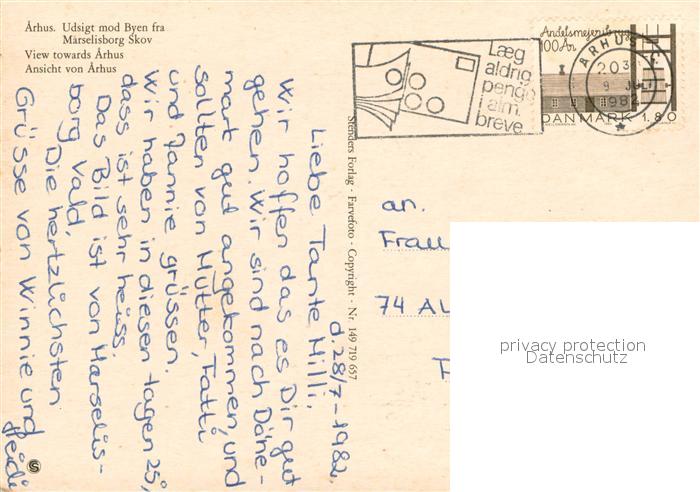 Århus. Udsigt mod Byen fra
Marselisborg Skov
View towards Århus
Ansicht von Århus
Læg
aldrig
penge
i alm.
breve
Andelsmejeribrug
100 År
DANMARK 1.80
ÅRHUS
1982
Stenders Forlag · Farvefoto - Copyright - Nr 149 719 657
d. 28/7-1982
Liebe Tante Milli.
Wir hoffen das es Dir gut
gehen. Wir sind nach Däne-
mark gut angekommen, und
sollten von Mutter, Tatti
und Jannie grüssen.
Wir haben in diesen tagen 25°,
dass ist sehr heiss.
Das Bild ist von Marselis-
borg Vald.
Die hertzlichsten
Grüsse von Winnie und
an.
Frau
74 AL
privacy protection
Datenschutz
S